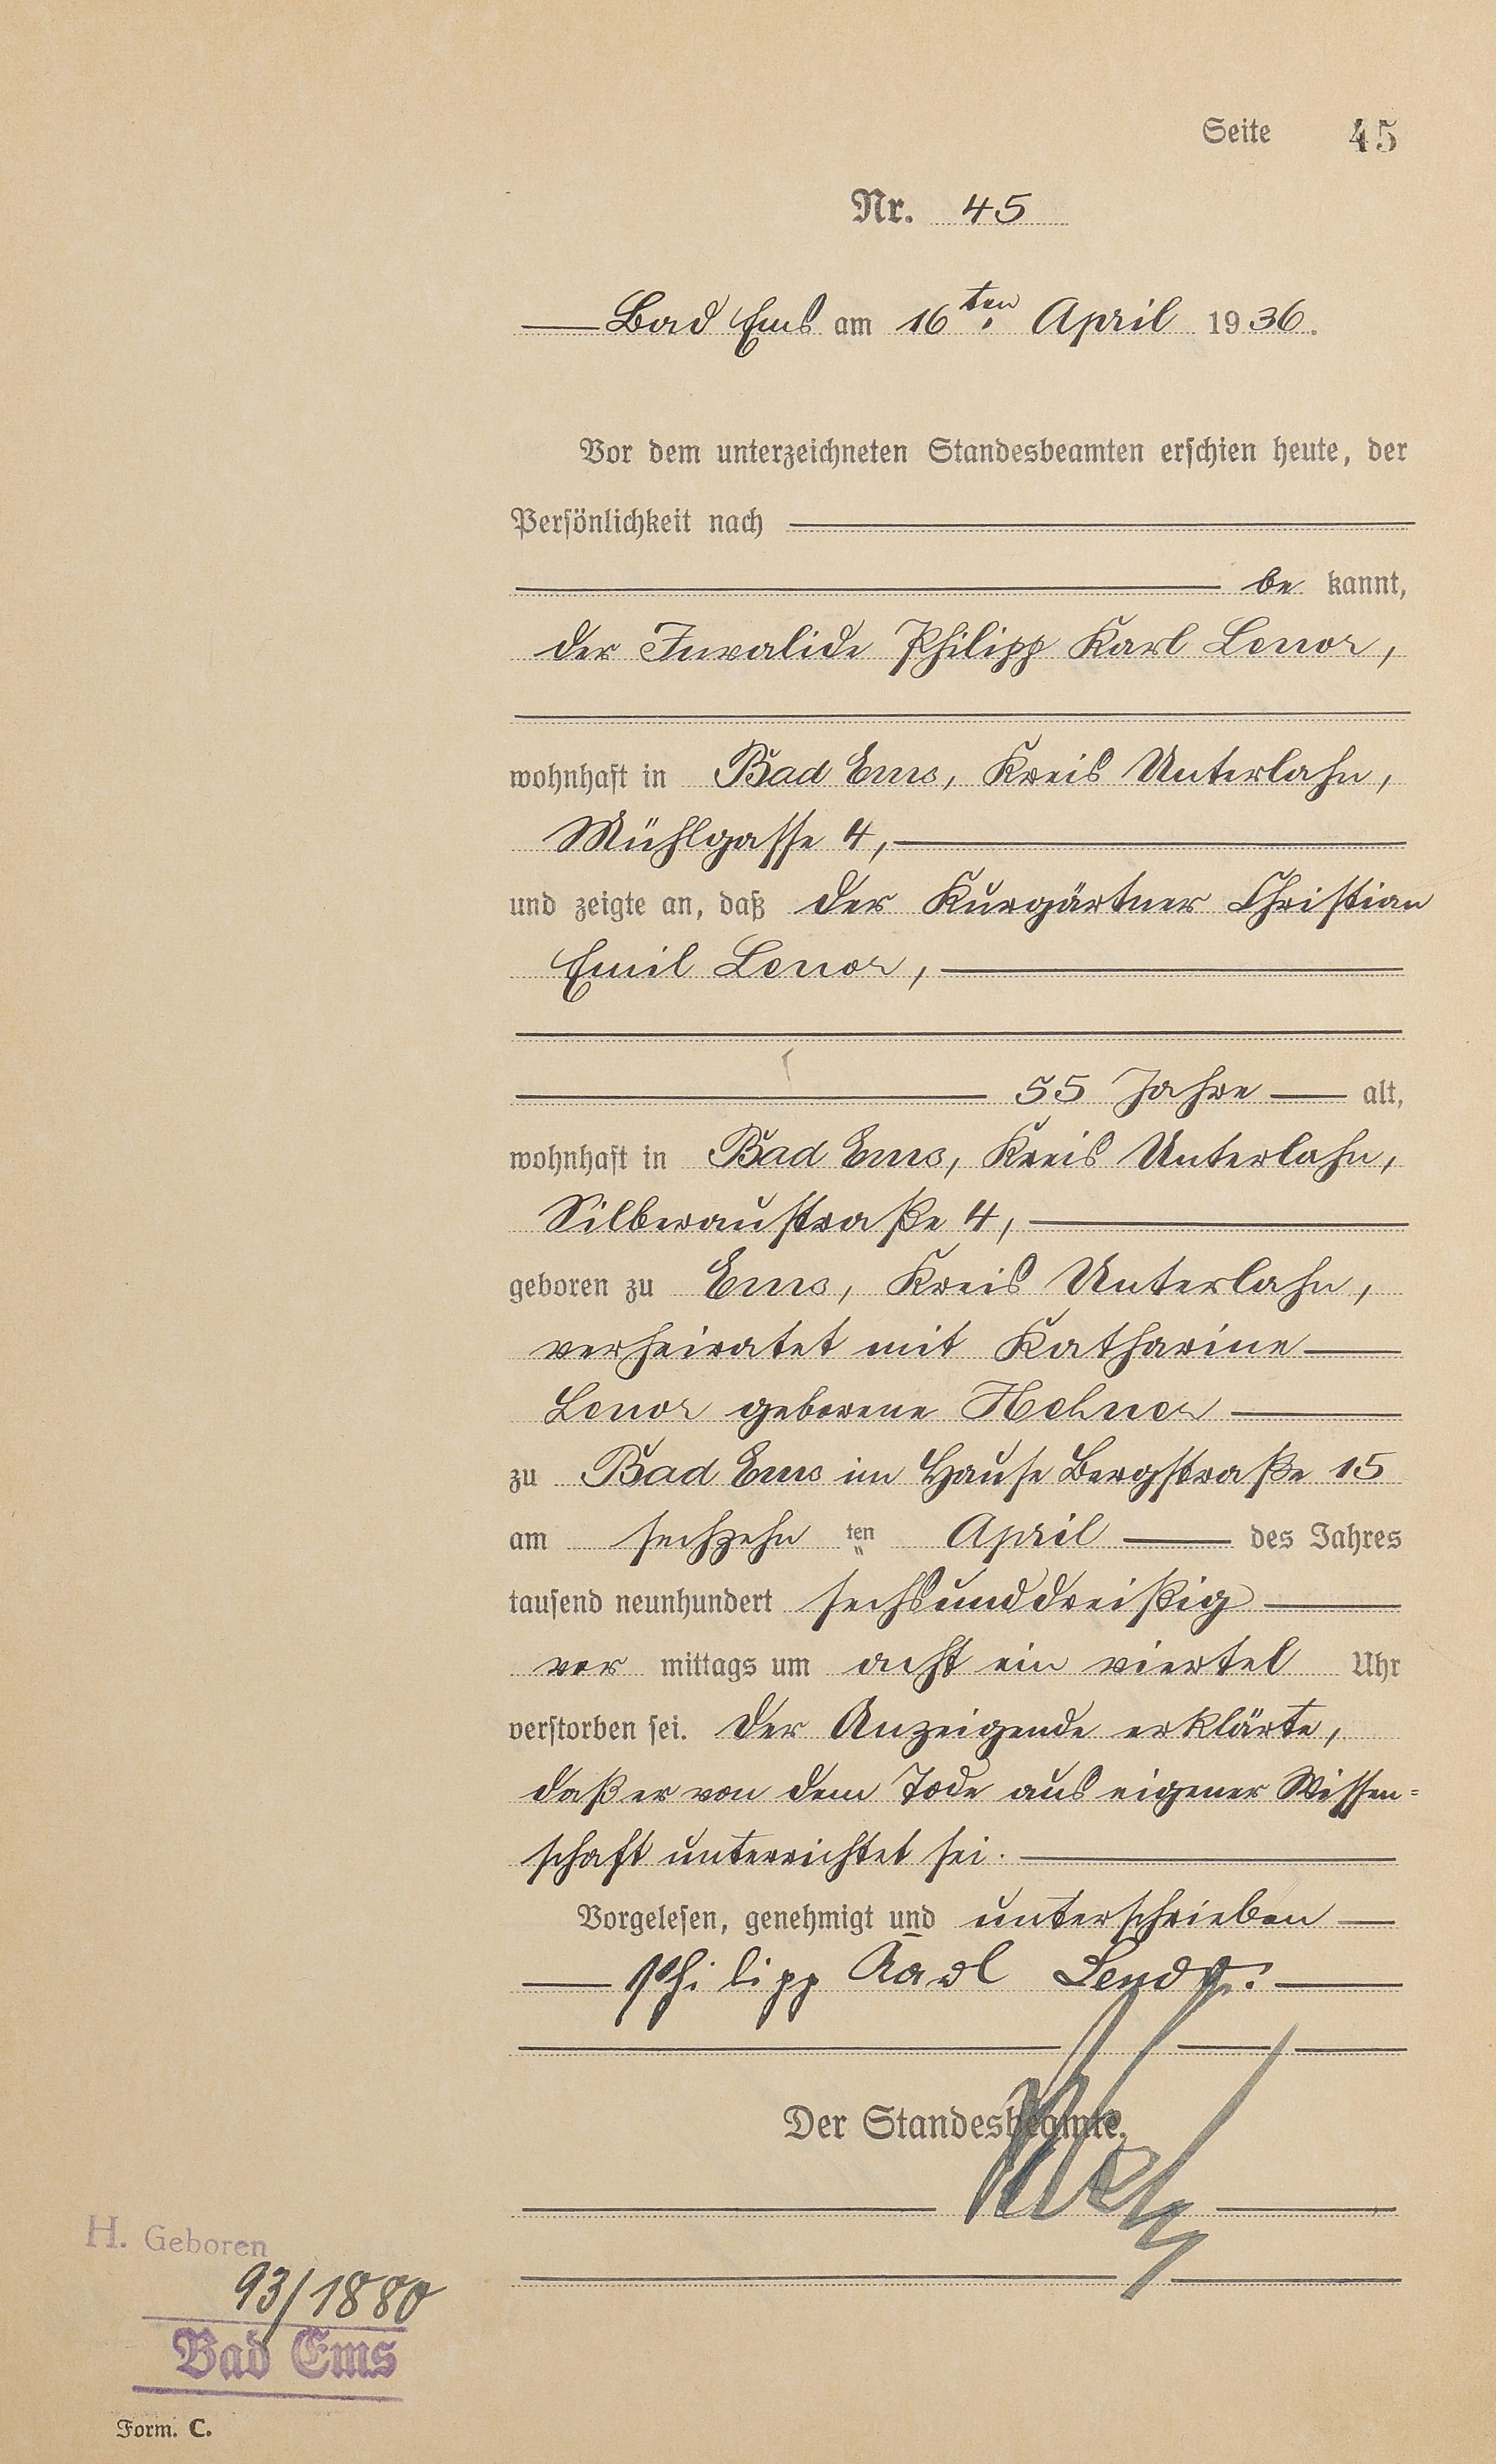 Seite 45
Nr. 45
Bad Ems am 16ten April 1936.
Vor dem unterzeichneten Standesbeamten erschien heute, der
Persönlichkeit nach
be kannt,
der Invalide Philipp Karl Lenor,
wohnhaft in Bad Ems, Kreis Unterlahn,
Mühlgasse 4,
und zeigte an, daß der Kurgärtner Christian
Emil Lenor,
55 Jahre alt,
wohnhaft in Bad Ems, Kreis Unterlahn,
Silberaustraße 4,
geboren zu Ems, Kreis Unterlahn,
verheiratet mit Katharine
Lenor geborene Hehner
zu Bad Ems im Hause Bergstraße 15
am sechzehn ten April des Jahres
tausend neunhundert sechsunddreißig
vor mittags um acht ein viertel Uhr
verstorben sei. Der Anzeigende erklärte,
daß er von dem Tode aus eigener Wissen=
schaft unterrichtet sei.
Vorgelesen, genehmigt und unterschrieben
Philipp Karl
Der Standesbeamte.
H. Geboren
93/1880
Bad Ems
Form. C.